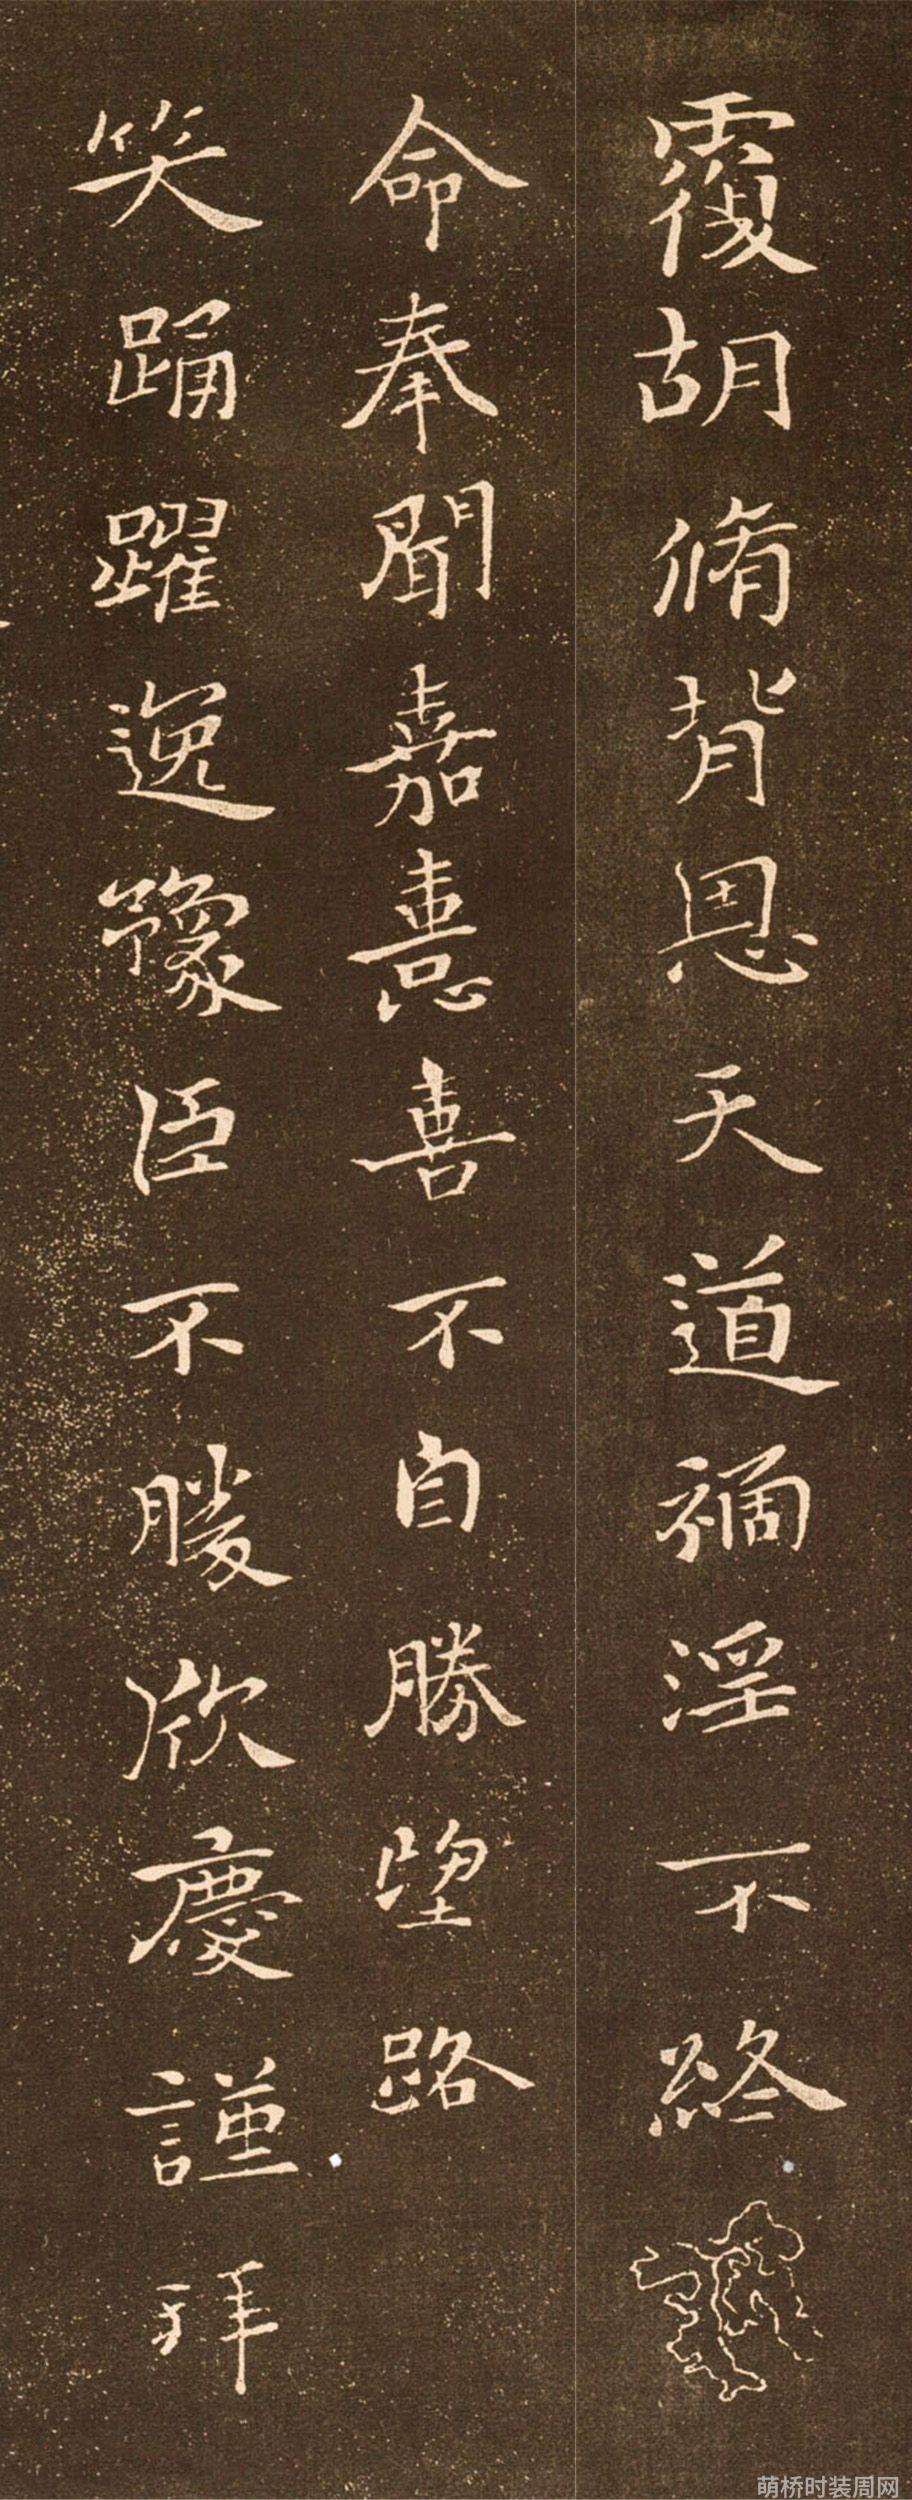 覆胡脩背恩天道禍淫不終
命奉聞嘉憙喜不自勝望路
笑踊躍逸豫臣不勝欣慶謹拜
萌桥时装周网